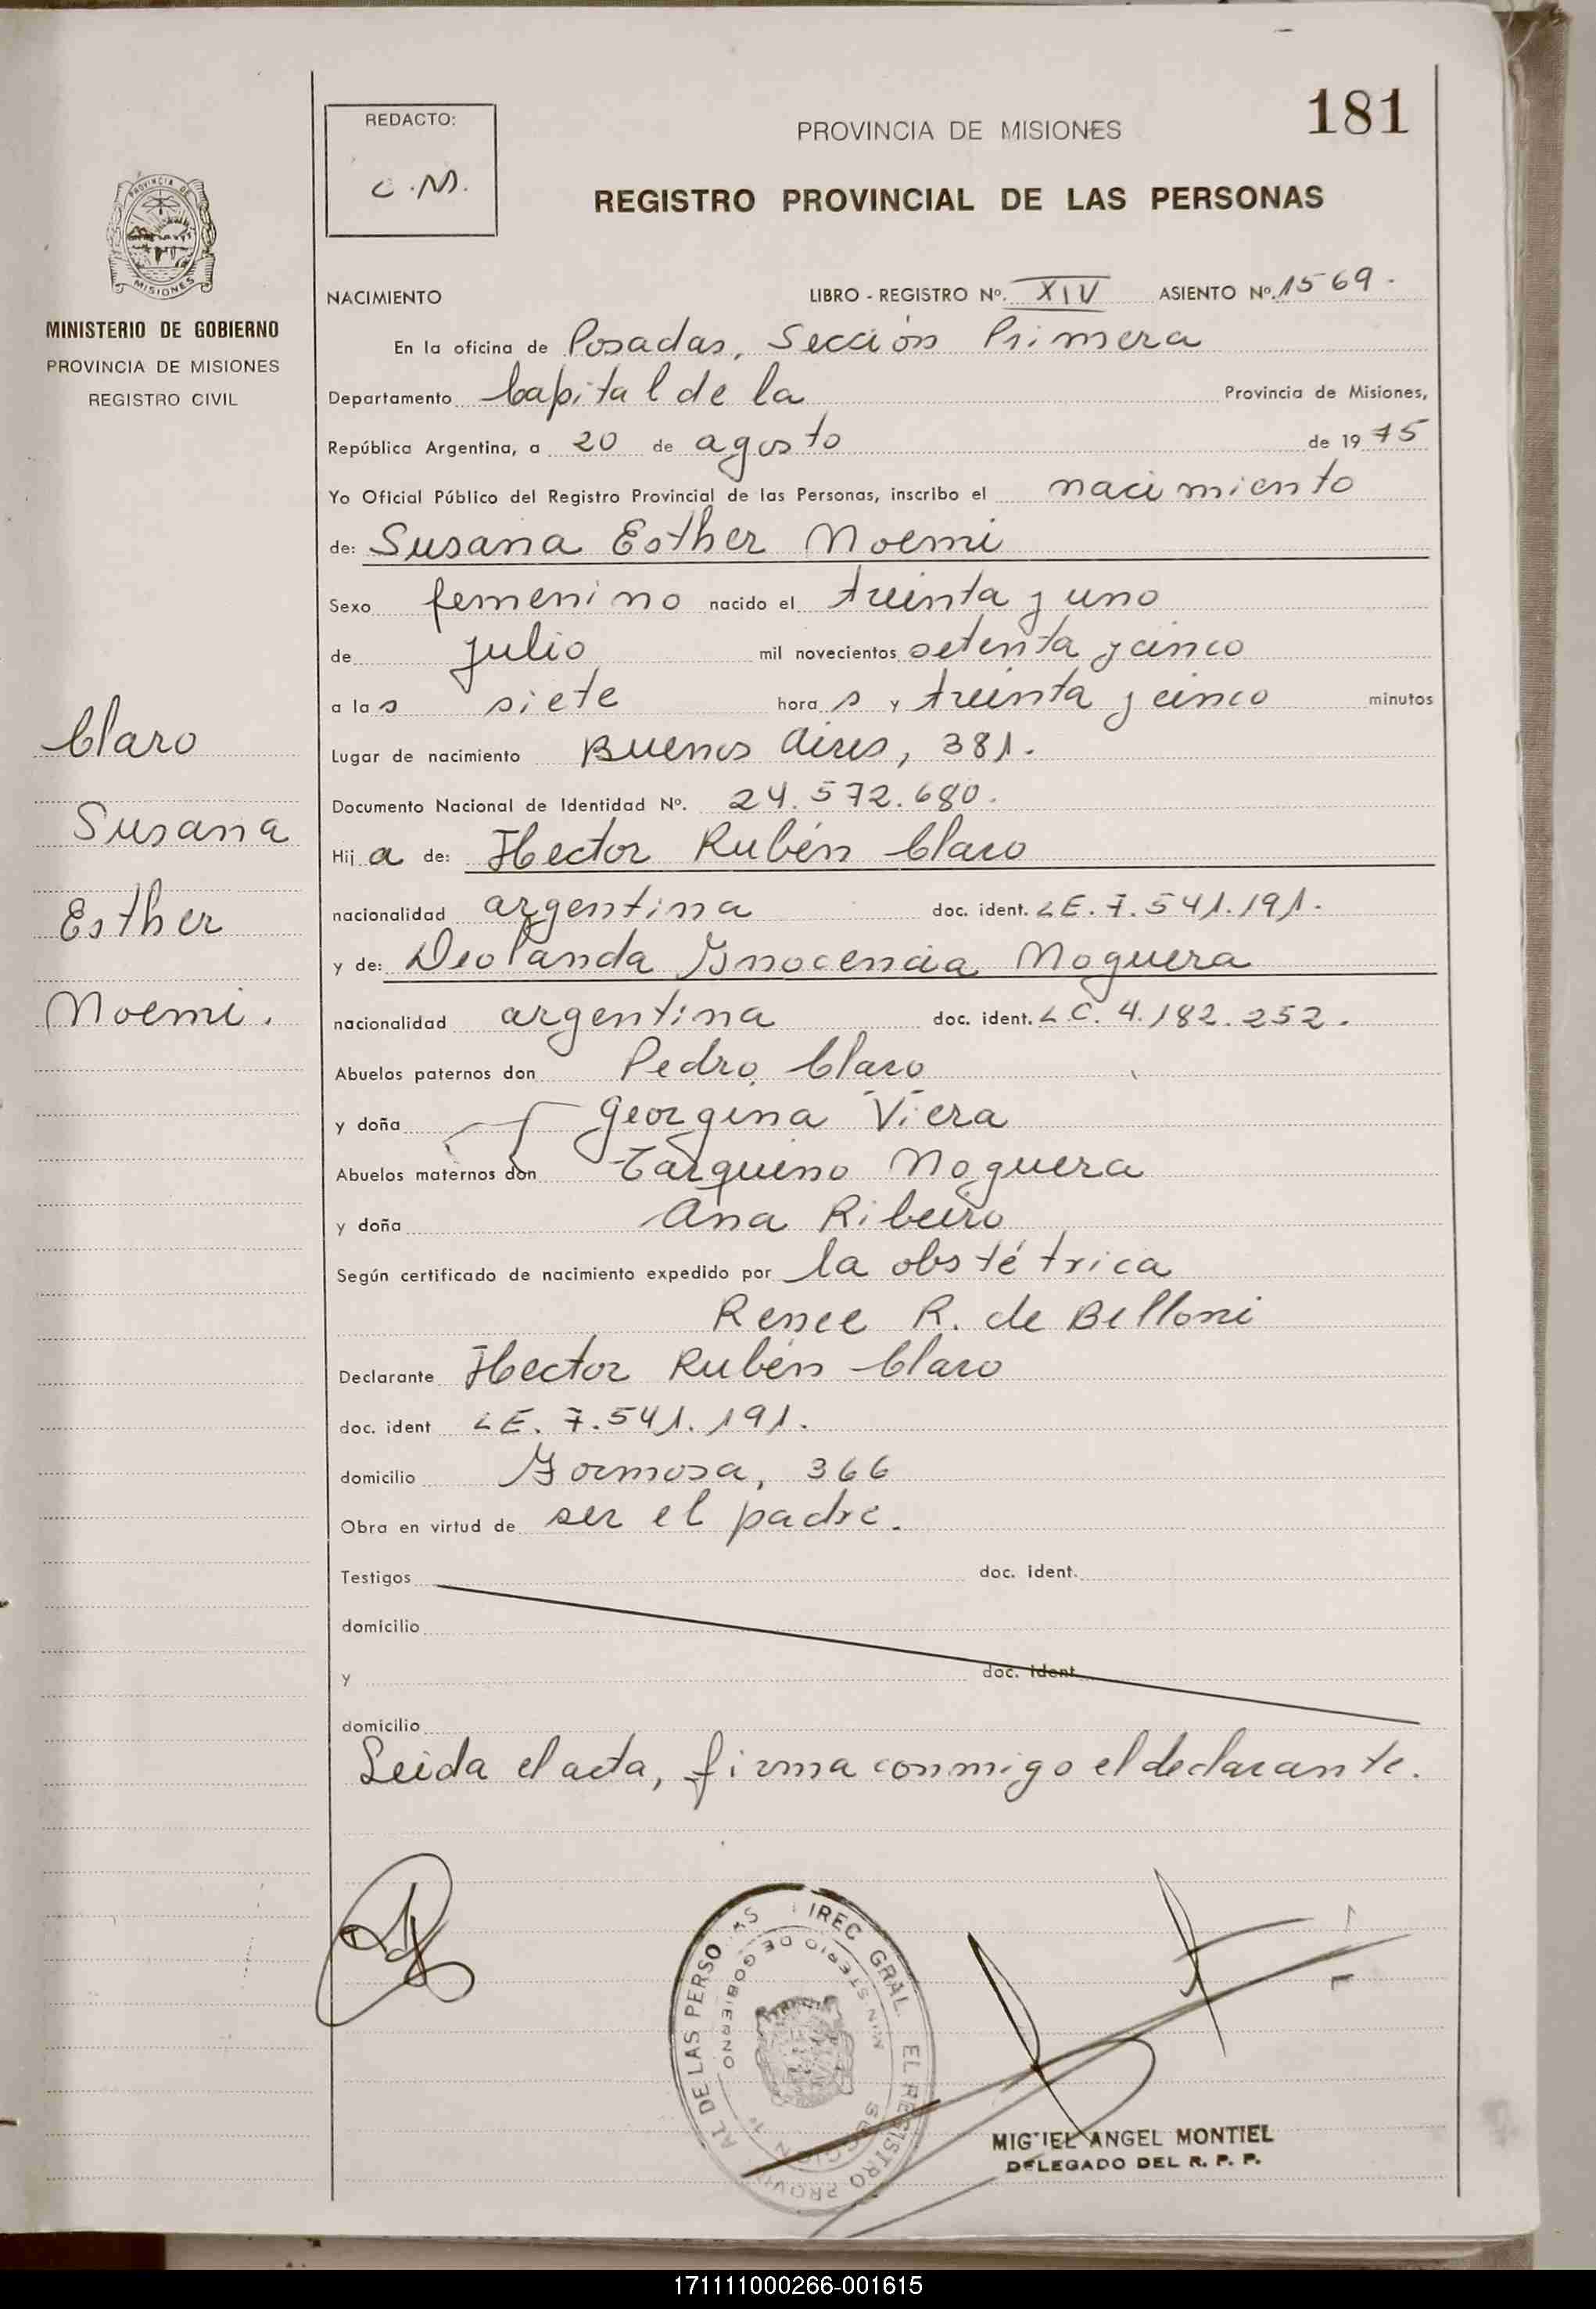 181
REDACTO:
C.M.
PROVINCIA DE MISIONES
REGISTRO PROVINCIAL DE LAS PERSONAS
MISIONES
MINISTERIO DE GOBIERNO
PROVINCIA DE MISIONES
REGISTRO CIVIL
NACIMIENTO LIBRO - REGISTRO Nº. XIV ASIENTO Nº. 1569.
En la oficina de Posadas, Sección Primera
Departamento Capital de la Provincia de Misiones,
República Argentina, a 20 de agosto de 1975
Yo Oficial Público del Registro Provincial de las Personas, inscribo el nacimiento
de: Susana Esther Noemi
Sexo femenino nacido el treinta y uno
de julio mil novecientos setenta y cinco
a las siete horas y treinta y cinco minutos
Lugar de nacimiento Buenos Aires, 381.
Documento Nacional de Identidad Nº. 24.572.680.
Hija de: Hector Rubén Claro
nacionalidad argentina doc. ident. LE. 7.541.191.
y de: Deolanda Ynocencia Noguera
nacionalidad argentina doc. ident. LC. 4.182.252.
Abuelos paternos don Pedro Claro
y doña Georgina Viera
Abuelos maternos don Tarquino Noguera
y doña Ana Ribeiro
Según certificado de nacimiento expedido por la obstétrica
Renee R. de Belloni
Declarante Hector Rubén Claro
doc. ident LE. 7.541.191.
domicilio Formosa, 366
Obra en virtud de ser el padre.
Testigos doc. ident.
domicilio
y doc. ident.
domicilio
Leida el acta, firma conmigo el declarante.
Claro
Susana
Esther
Noemi.
MIGUEL ANGEL MONTIEL
DELEGADO DEL R. P. P.
171111000266-001615